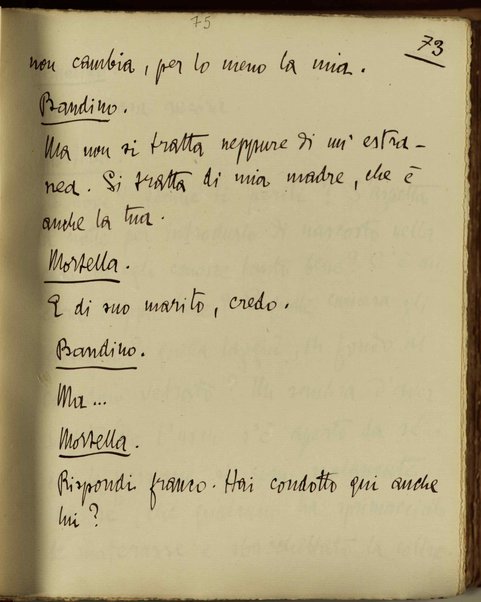 75
73
non cambia, per lo meno la mia.
Bandino.
Ma non si tratta neppure di un' estra-
nea. Si tratta di mia madre, che è
anche la tua.
Mortella.
E di suo marito, credo.
Bandino.
Ma...
Mortella.
Rispondi franco. Hai condotto qui anche
lui?